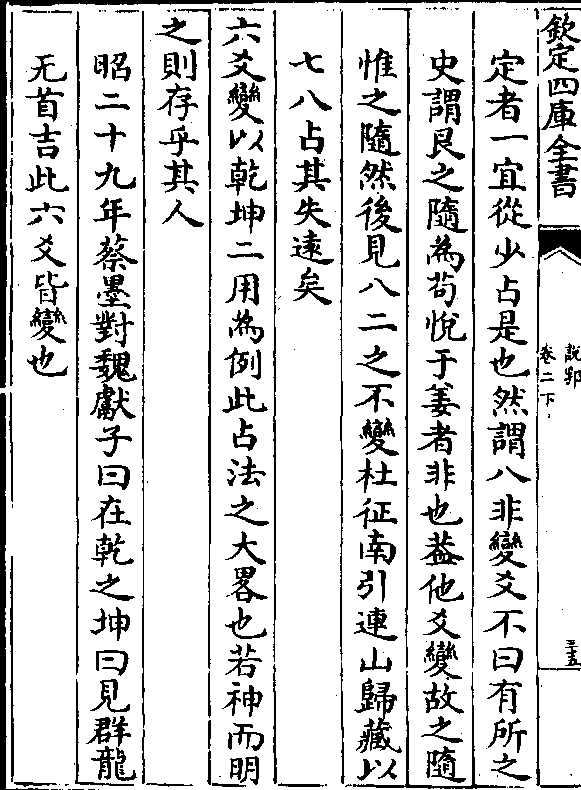 欽定四庫全書
說郛
卷二下
五十五
定者一宜從少占是也然謂八非變爻不曰有所之
史謂艮之隨為苟悅于姜者非也葢他爻變故之隨
惟之隨然後見八二之不變杜征南引連山歸藏以
七八占其失遠矣
六爻變以乾坤二用為例此占法之大畧也若神而明
之則存乎其人
昭二十九年蔡墨對魏獻子曰在乾之坤曰見群龍
无首吉此六爻皆變也